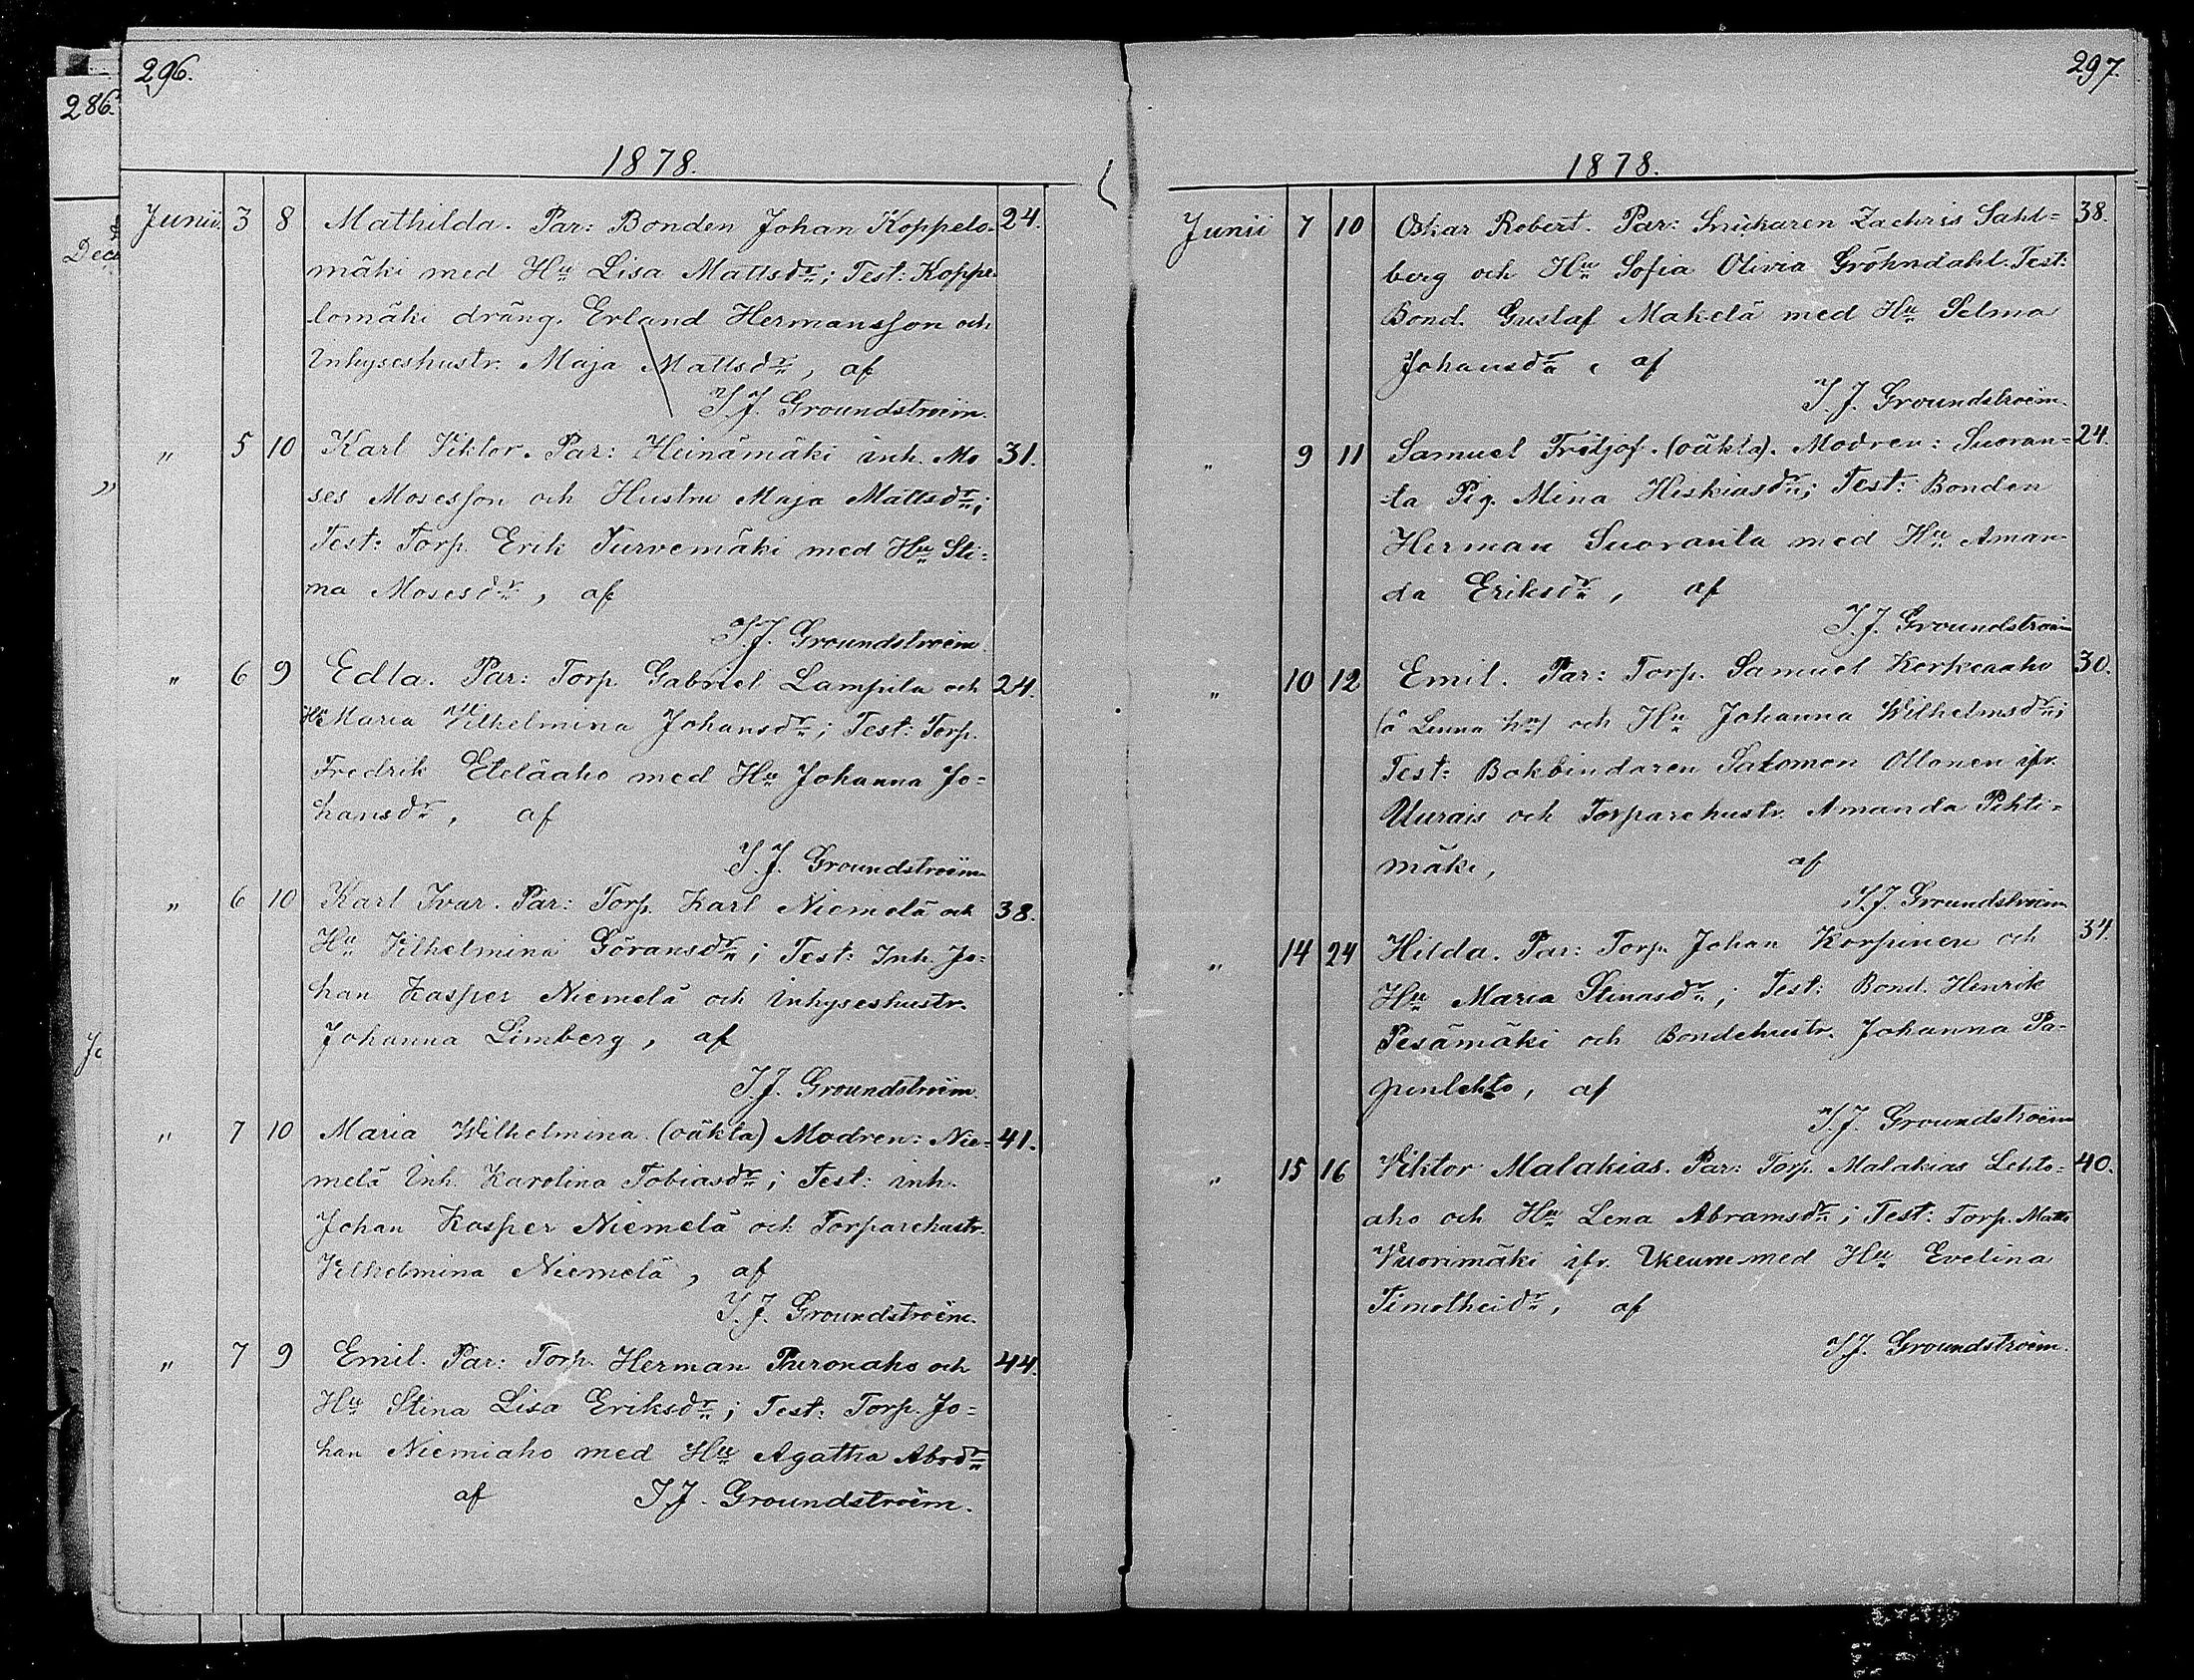 296.
286.
1878.
Junii. 3 8 Mathilda. Par: Bonden Johan Koppelo- 24.
mäki med Hu Lisa Mattsdr; Test: Koppe
lomäki dräng. Erland Hermansson och
Inhyseshustr. Maja Mattsdr, af
I.J. Groundstroëm.
" 5 10 Karl Viktor. Par: Heinämäki inh. Mo 31.
ses Mosesson och Hustru Maja Mattsdr;
Test: Torp. Erik Turvemäki med Hu Sti=
na Mosesdr, af
I.J. Groundstroëm
" 6 9 Edla. Par: Torp. Gabriel Lampila och 24.
Hu Maria Vilhelmina Johansdr; Test: Torp.
Fredrik Eteläaho med Hu Johanna Jo=
hansdr, af
I.J. Groundstroëm
" 6 10 Karl Ivar. Par: Torp. Karl Niemelä och 38.
Hu Vilhelmina Göransdr; Test: Inh. Jo=
han Kasper Niemelä och Inhyseshustr.
Johanna Limberg, af
I.J. Groundstroëm.
" 7 10 Maria Wilhelmina (oäkta) Modren: Nie= 41.
melä Inh. Karolina Tobiasdr; Test: inh.
Johan Kasper Niemelä och Torparehustr.
Vilhelmina Niemelä, af
I.J. Groundstroëm.
" 7 9 Emil. Par: Torp. Herman Puronaho och 44.
Hu Stina Lisa Eriksdr; Test: Torp. Jo=
han Niemiaho med Hu Agatha Abrdr
af I.J. Groundstroëm.
297.
1878.
Junii 7 10 Oskar Robert. Par: Snickaren Zachris Sahl= 38.
berg och Hu Sofia Olivia Gröhndahl. Test:
Bond. Gustaf Makelä med Hu Selma
Johansdr, af
I.J. Groundstroëm.
" 9 11 Samuel Fritjof. (oäkta). Modren: Suoran= 24.
-ta Pig. Mina Hiskiasdr; Test: Bonden
Herman Suoranta med Hu Aman-
da Eriksdr, af
I.J. Groundstroëm
" 10 12 Emil. Par: Torp. Samuel Korkeaaho 30.
(å Linna hn) och Hu Johanna Wilhelmsdr;
Test: Bokbindaren Salomon Ollonen ifr.
Uurais och Torparehustr. Amanda Pihti=
mäki, af
I.J. Groundstroëm
" 14 24 Hilda. Par: Torp. Johan Korpinen och 34.
Hu Maria Stinasdr; Test: Bond. Henrik
Pesämäki och Bondehustr. Johanna Pa-
punlehto, af
I.J. Groundstroëm
" 15 16 Viktor Malakias. Par: Torp. Malakias Lehto= 40.
aho och Hu Lena Abramsdr; Test: Torp. Matts
Vuorimäki ifr. med Hu Evelina
Timotheidr, af
I.J. Groundstroëm.